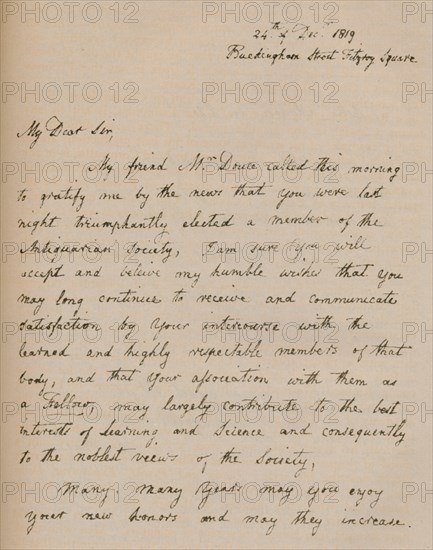 24th of Dec. 1819.
Buckingham Street Fitzroy Square.
My Dear Sir,
My friend Mr. Douce called this morning
to gratify me by the news that you were last
night triumphantly elected a member of the
Antiquarian Society, I am sure you will
accept and believe my humble wishes that you
may long continue to receive and communicate
satisfaction by your intercourse with the
learned and highly respectable members of that
body, and that your association with them as
a Fellow, may largely contribute to the best
interests of learning and science and consequently
to the noblest views of the Society,
Many, many years may you enjoy
your new honors and may they increase.
PHOTO12